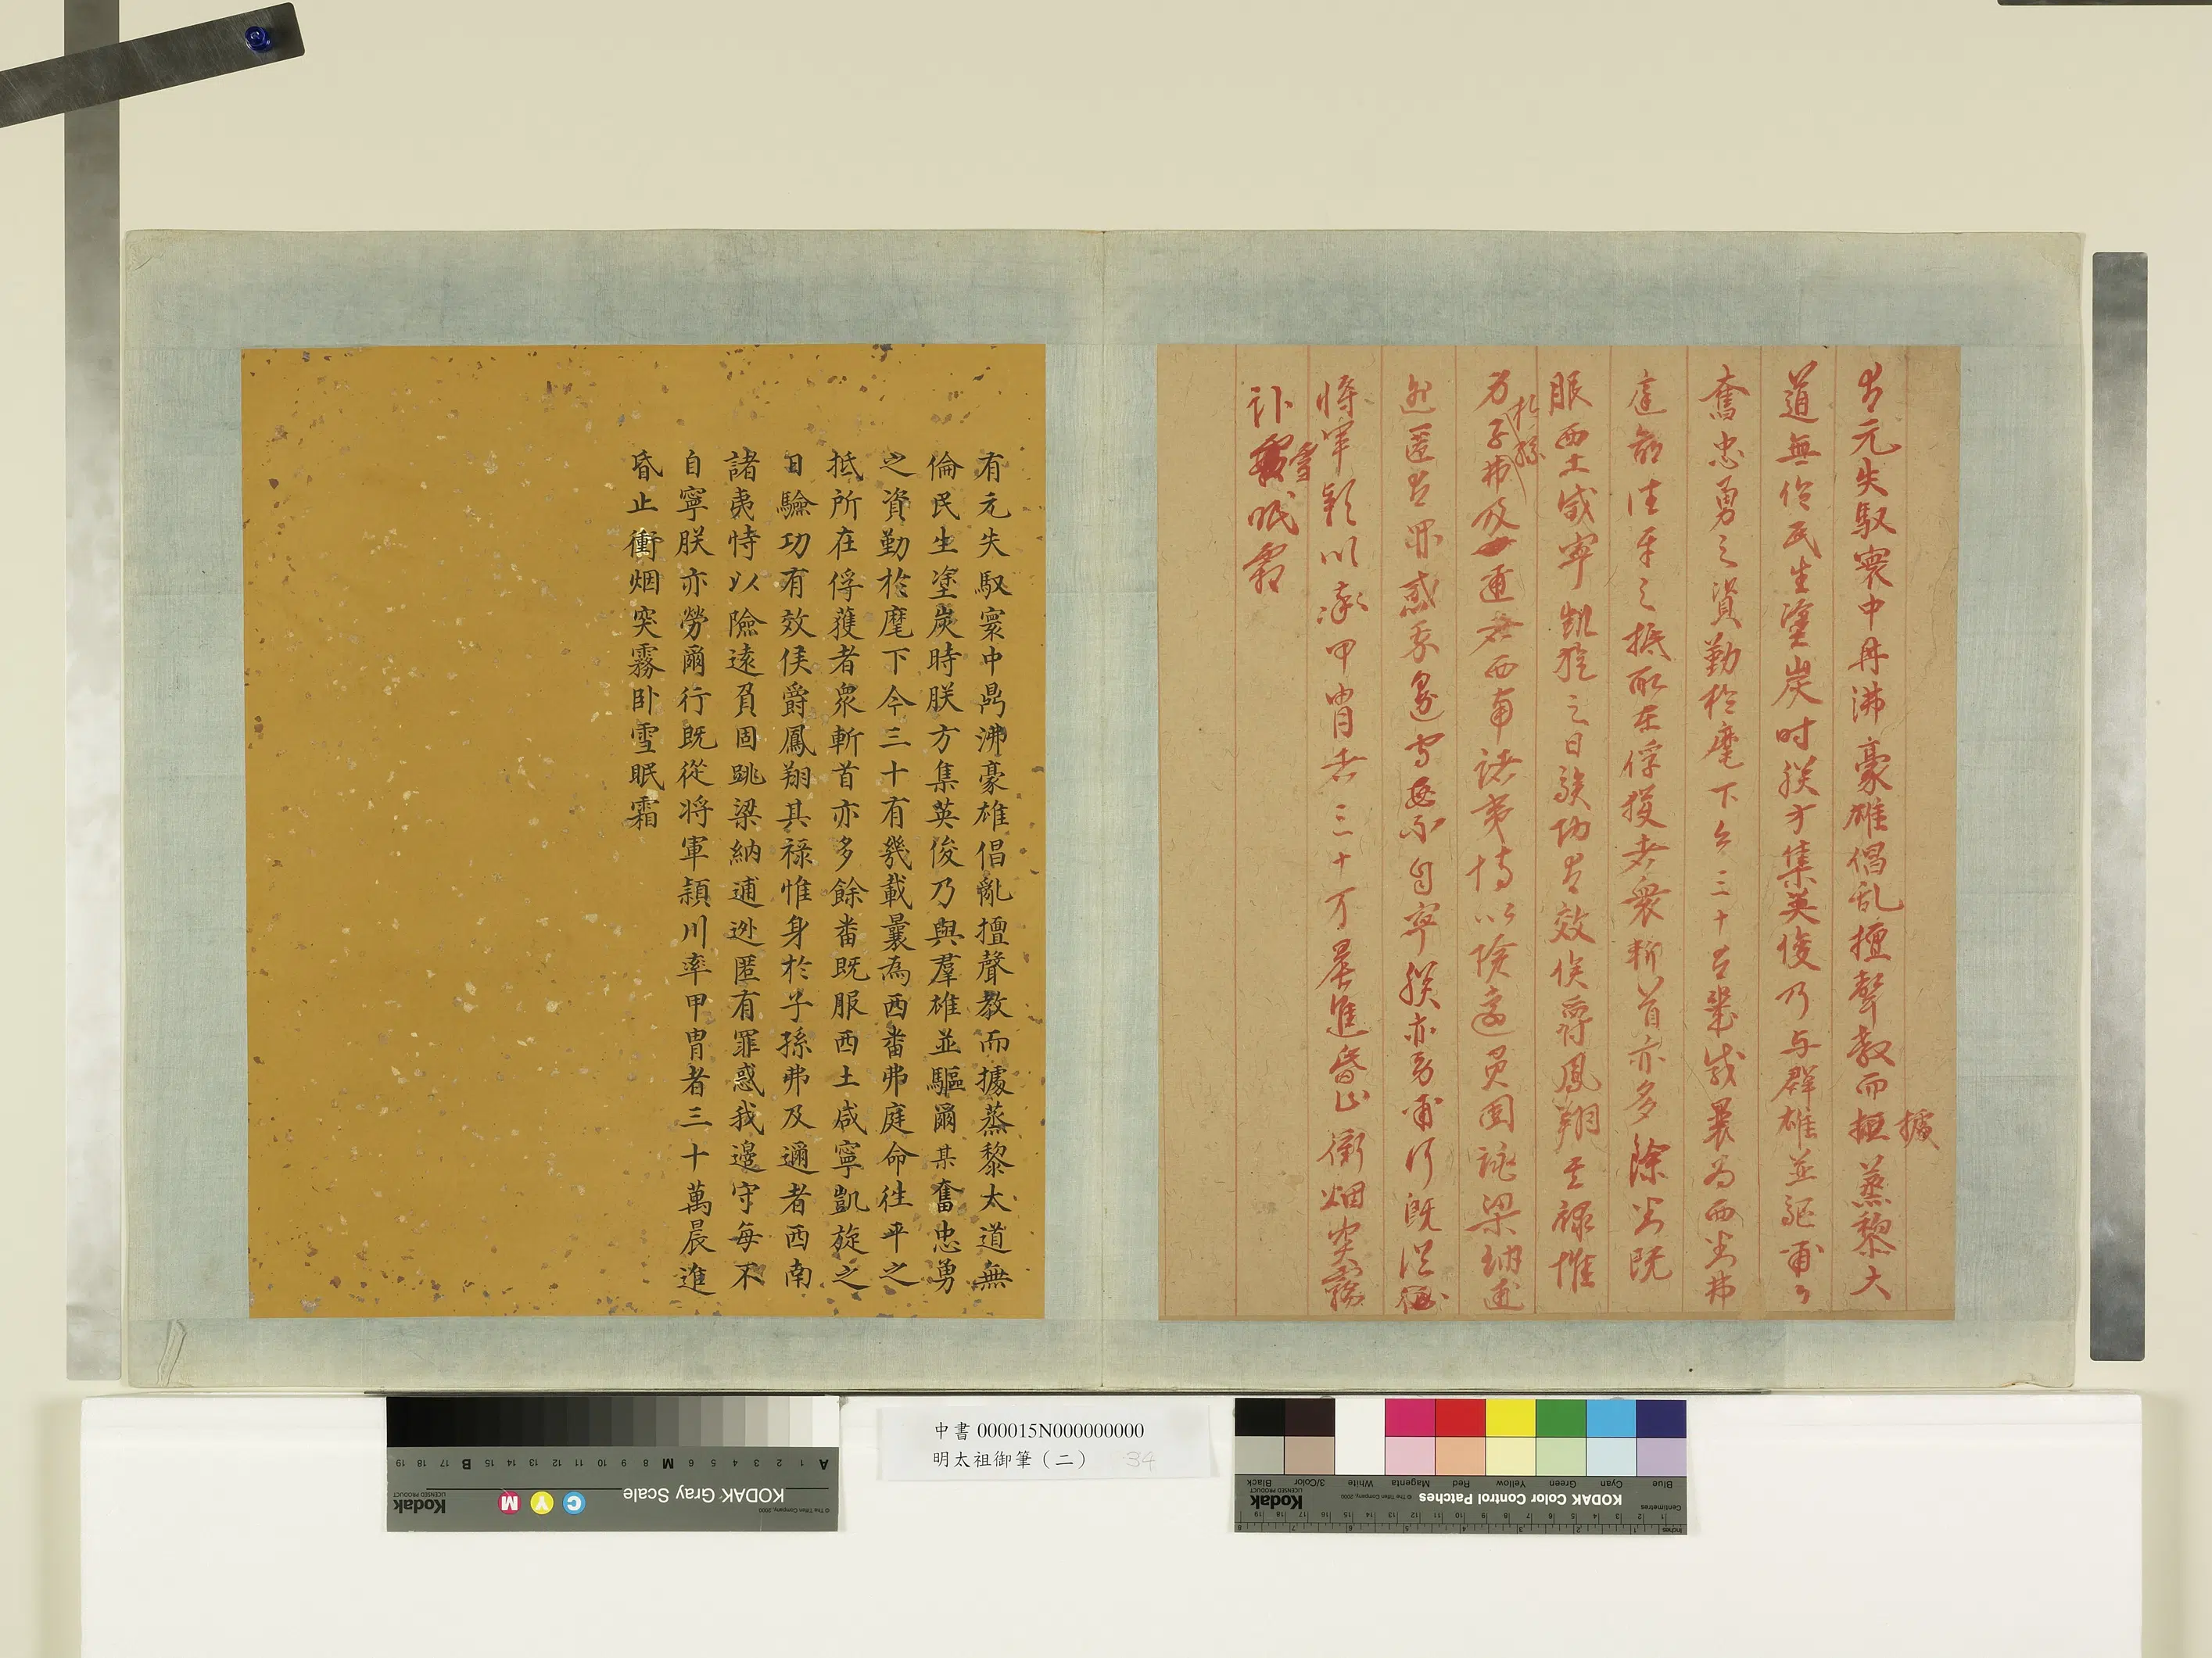 有元失馭寰中鼎沸豪雄倡乱擅聲教而據蒸黎大
道無倫民生塗炭时朕方集英俊乃与群雄並驅爾々
奮忠勇之資勤於麾下今三十有幾載曩為西畨弗
庭命往平之抵所在俘獲者衆斬首亦多除畨既
服西土咸寧凱旋之日驗功有效侯爵鳳翔其祿惟
身於子孫弗及邇者西南諸夷恃以險遠負固跳梁納逋
逃匿有罪惑我邊守每不自寧朕亦勞爾行既從
將軍穎川率甲冑者三十万晨進昏止衝烟突霧
卧雪眠霜
有元失馭寰中鼎沸豪雄倡亂擅聲教而據蒸黎太道無
倫民生塗炭時朕方集英俊乃與羣雄並驅爾某奮忠勇
之資勤於麾下今三十有幾載曩為西畨弗庭命往平之
抵所在俘獲者衆斬首亦多餘畨既服西土咸寧凱旋之
日驗功有效侯爵鳳翔其祿惟身於子孫弗及邇者西南
諸夷恃以險遠負固跳梁納逋逃匿有罪惑我邊守每不
自寧朕亦勞爾行既從將軍頴川率甲冑者三十萬晨進
昏止衝烟突霧卧雪眠霜
中書 000015N000000000
明太祖御筆（二） 34
KODAK Gray Scale
Kodak
LICENSED PRODUCT
© The Tiffen Company, 2000
A 1 2 3 4 5 6 M 8 9 10 11 12 13 14 15 B 17 18 19
C Y M
KODAK Color Control Patches
Kodak
LICENSED PRODUCT
© The Tiffen Company, 2000
Blue Cyan Green Yellow Red Magenta White 3/Color Black
Inches
Centimetres